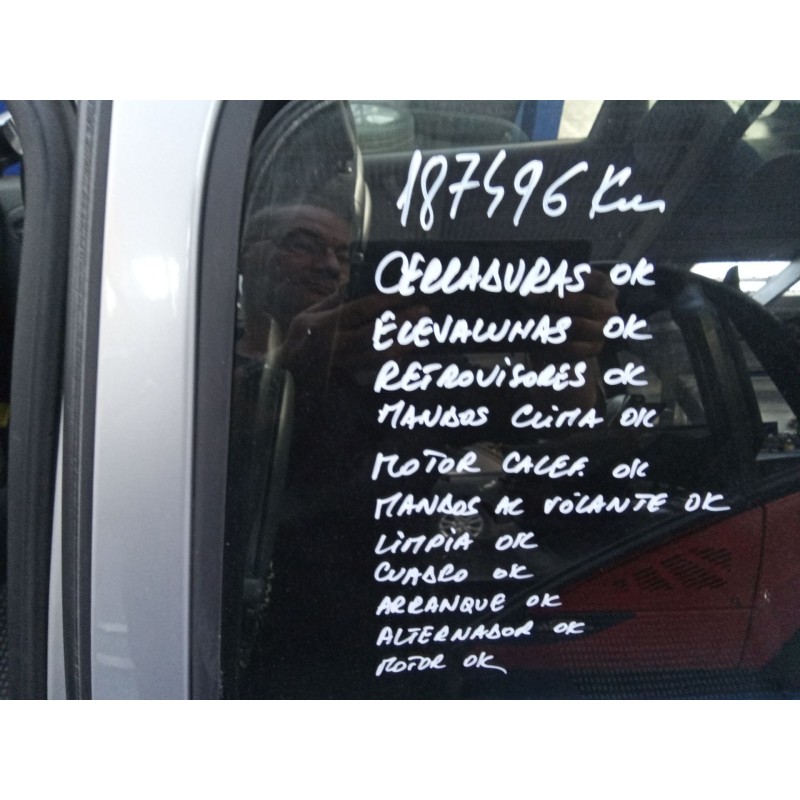 187496 Km
CERRADURAS OK
ELEVALUNAS OK
RETROVISORES OK
MANDOS CLIMA OK
MOTOR CALEF. OK
MANDOS AL VOLANTE OK
LIMPIA OK
CUADRO OK
ARRANQUE OK
ALTERNADOR OK
MOTOR OK